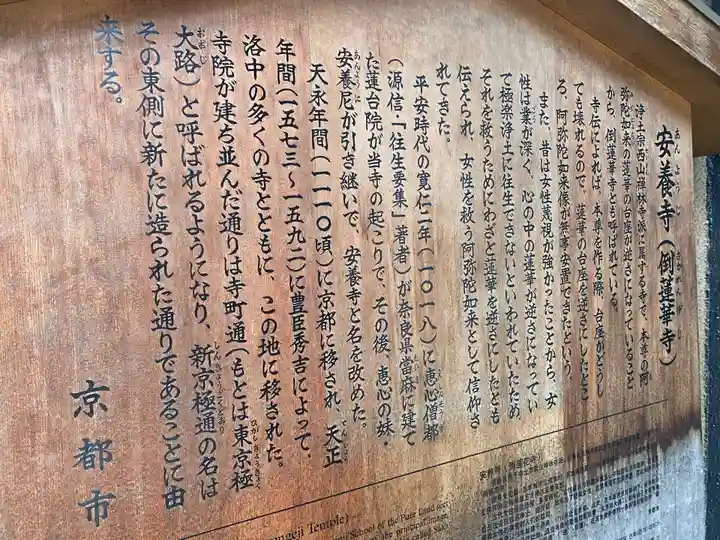 安養寺（倒蓮華寺）
あんようじ さかれんげじ
浄土宗西山禅林寺派に属する寺で、本尊の阿
弥陀如来の蓮華の台座が逆さになっていること
から、倒蓮華寺とも呼ばれている。
寺伝によれば、本尊を作る際、台座がどうし
ても壊れるので、蓮華の台座を逆さにしたとこ
ろ、阿弥陀如来像が無事安置できたという。
また、昔は女性蔑視が強かったことから、女
性は業が深く、心の中の蓮華が逆さになってい
て極楽浄土に往生できないといわれていたため
それを救うためにわざと蓮華を逆さにしたとも
伝えられ、女性を救う阿弥陀如来として信仰さ
れてきた。
平安時代の寛仁二年（一〇一八）に恵心僧都
（源信・「往生要集」著者）が奈良県當麻に建て
た蓮台院が当寺の起こりで、その後、恵心の妹・
安養尼が引き継いで、安養寺と名を改めた。
あんように
天永年間（一一一〇頃）に京都に移され、天正
てんしょう
年間（一五七三～一五九二）に豊臣秀吉によって、
洛中の多くの寺とともに、この地に移された。
寺院が建ち並んだ通りは寺町通（もとは東京極
ひがしきょうごく
大路）と呼ばれるようになり、新京極通の名は
おおじ しんきょうごくどおり
その東側に新たに造られた通りであることに由
来する。
京都市
ongeji Temple)
School of the Pure Land sect
the principal image,